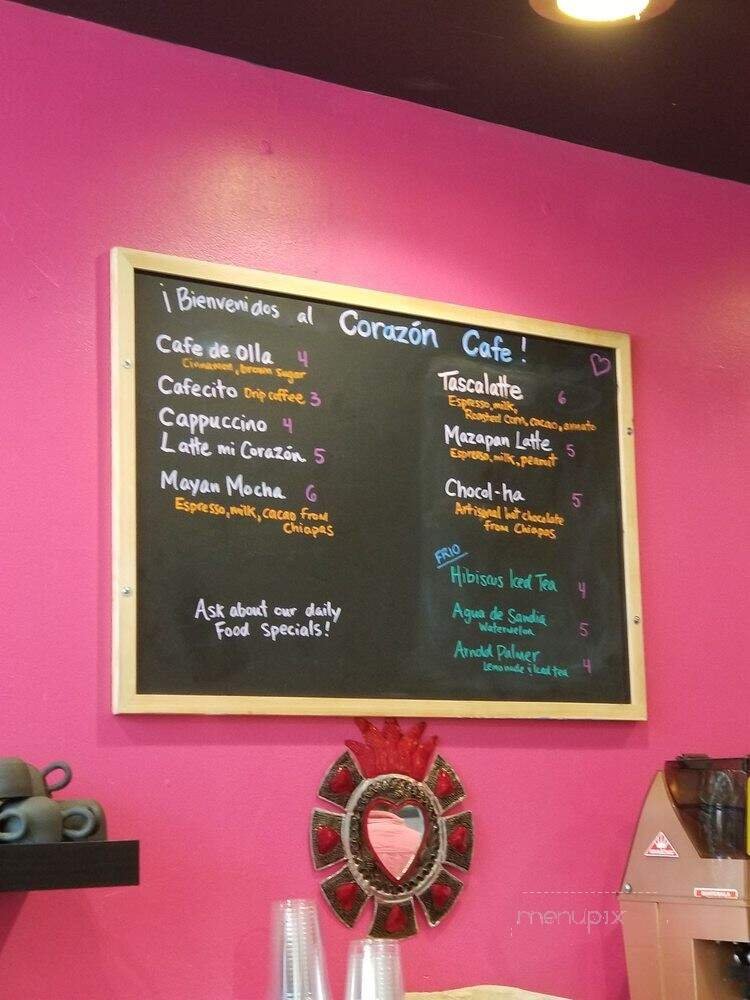 ¡Bienvenidos al Corazón Cafe!
Cafe de Olla 4
Cinnamon, brown sugar
Cafecito Drip coffee 3
Cappuccino 4
Latte mi Corazón 5
Mayan Mocha 6
Espresso, milk, cacao from
Chiapas
Ask about our daily
Food Specials!
Tascalatte 6
Espresso, milk,
Roasted corn, cacao, annato
Mazapan Latte 5
Espresso, milk, peanut
Chocol-ha 5
Artisanal hot chocolate
from Chiapas
FRIO
Hibiscus Iced Tea 4
Agua de Sandia 5
Watermelon
Arnold Palmer 4
Lemonade & Iced tea
menupix